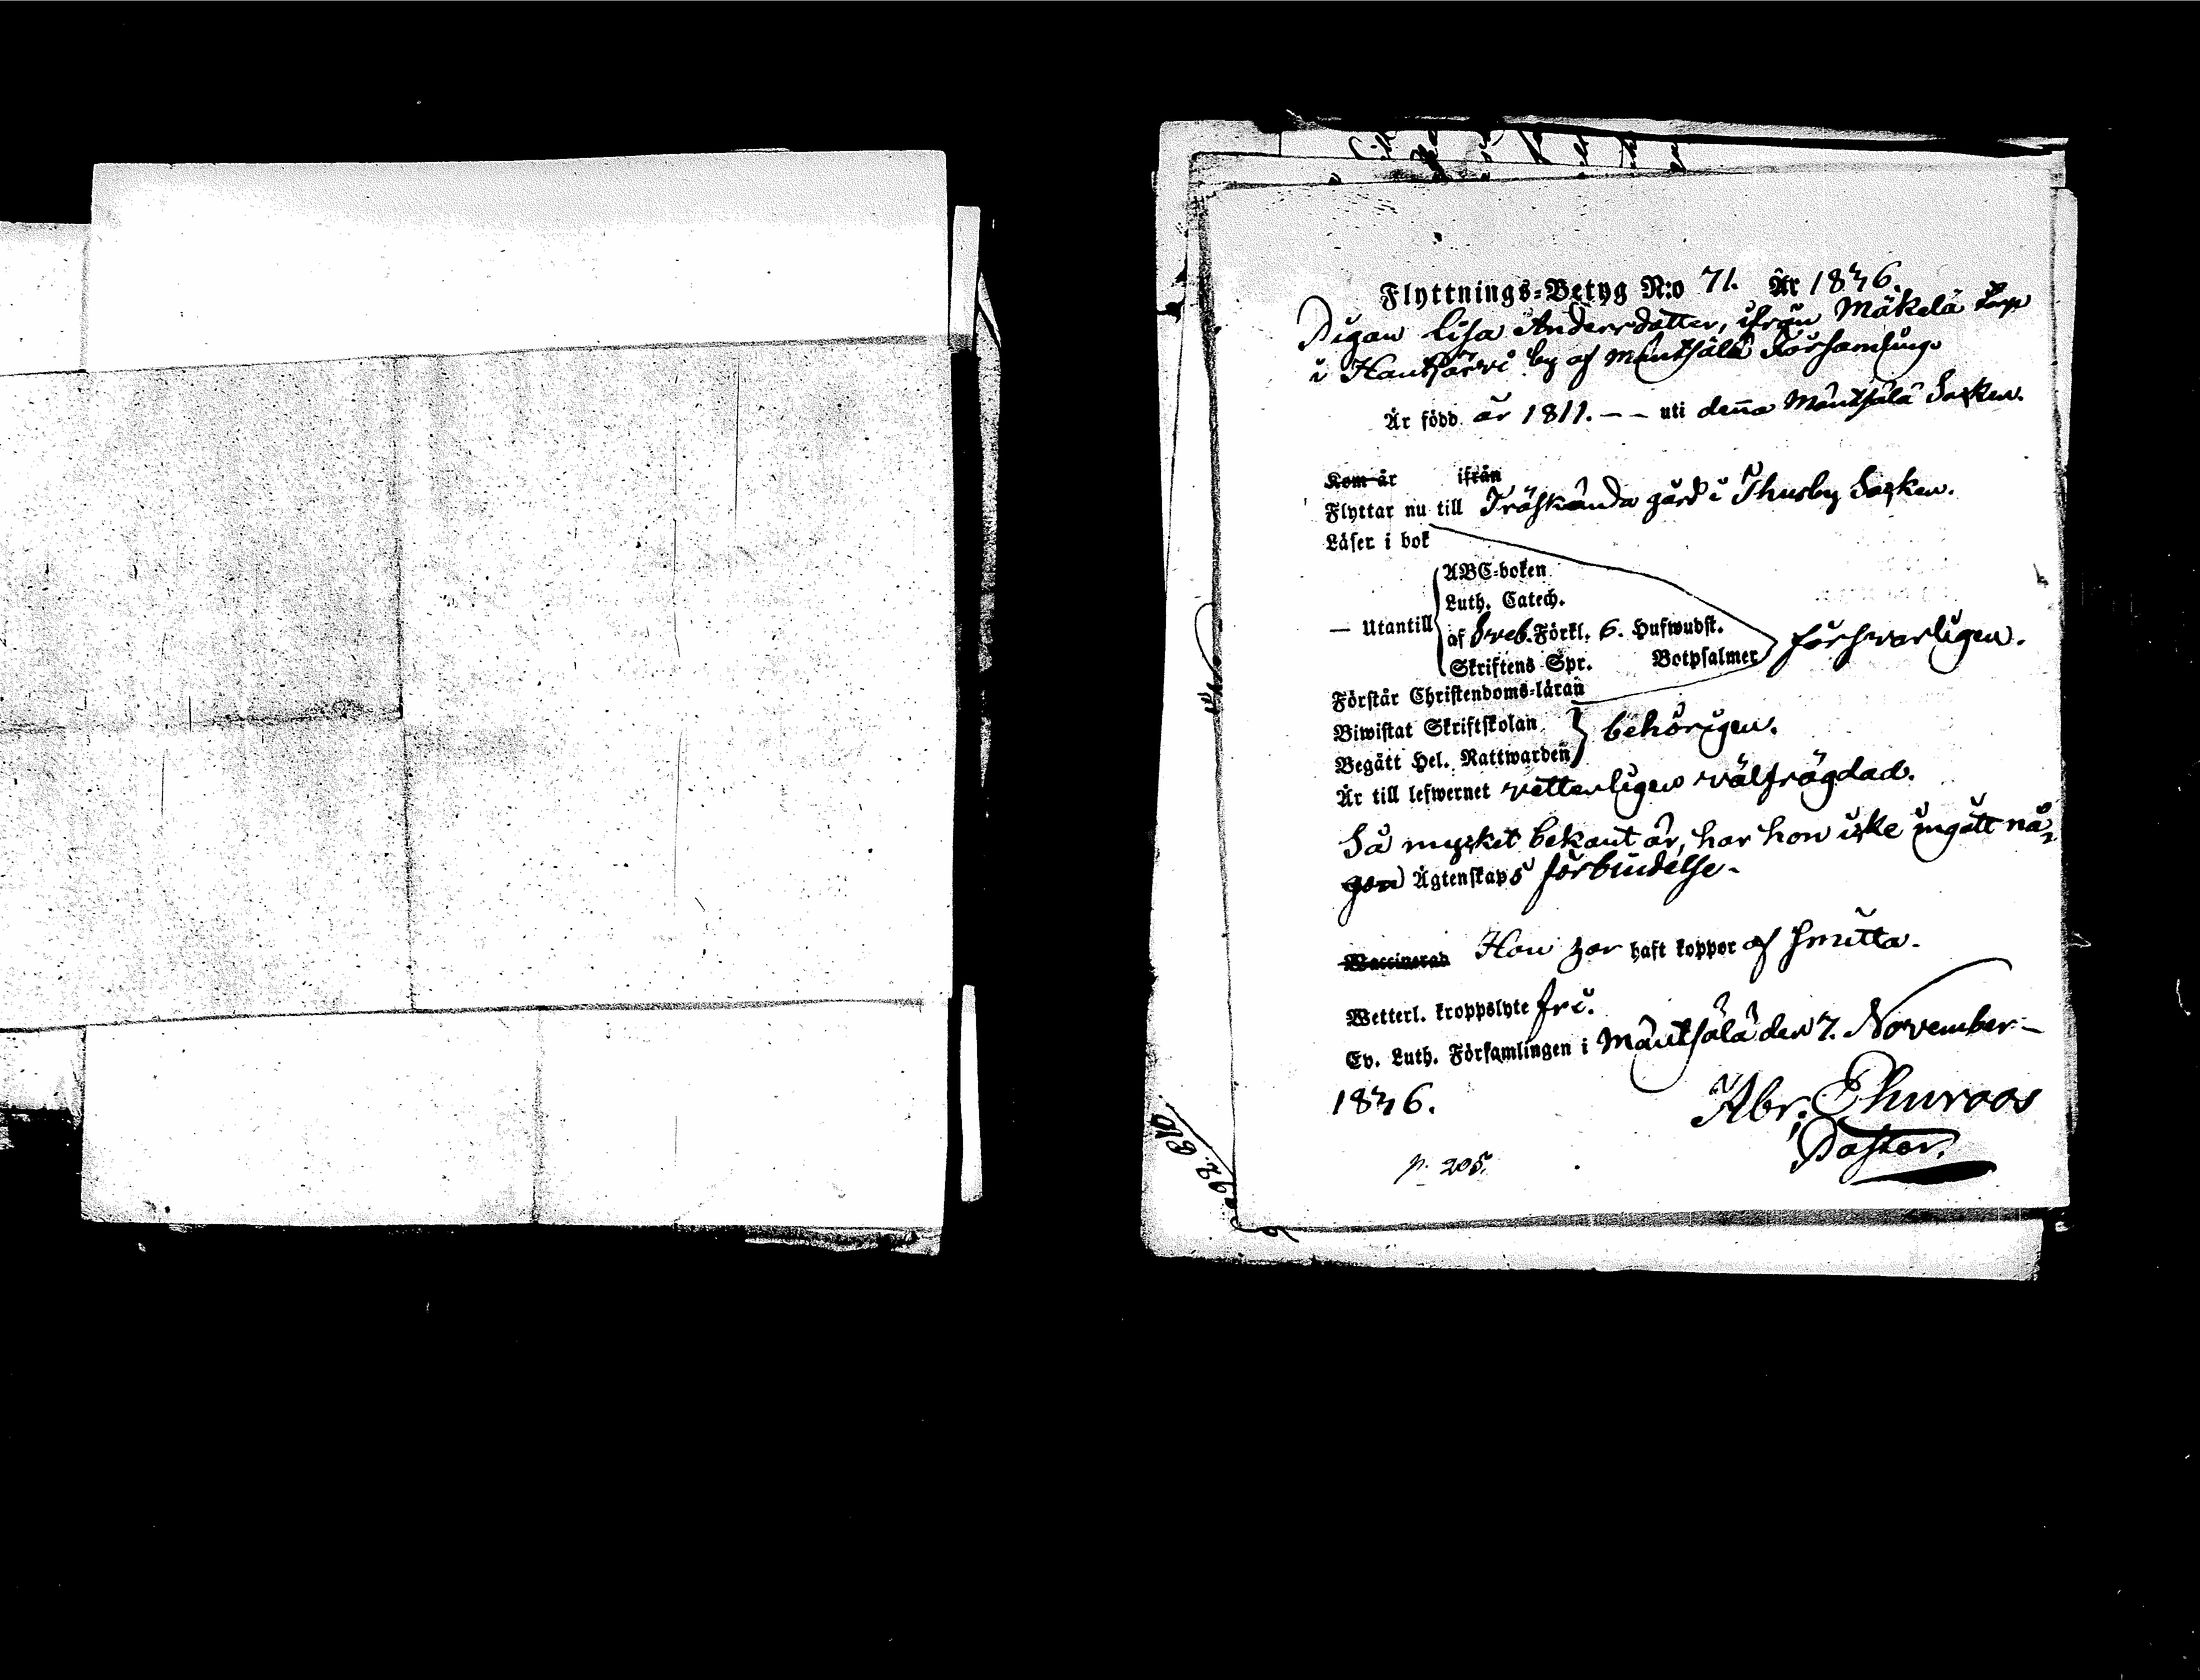 Flyttnings-Betyg N:o 71. År 1836.
Pigan Lisa Andersdotter, ifrån Mäkelä torp
i Hautjärvi by af Mäntsälä Församling
Är född år 1811. — — uti denna Mäntsälä Socken.
Kom år ifrån
Flyttar nu till Träskända gård i Thusby Socken.
Läser i bok
ABC-boken
Luth. Catech.
— Utantill af Sveb. Förkl. 6. Hufwudst. försvarligen.
Skriftens Spr. Botpsalmer
Förstår Christendoms-läran
Biwistat Skriftskolan behörigen.
Begått Hel. Nattwarden
Är till lefwernet vetterligen välfrägdad.
Så mycket bekant är, har hon icke ingått nå-
gon Ägtenskaps förbindelse.
Waccinerad Hon har haft koppor af smitta.
Wetterl. kroppslyte fri.
Ev. Luth. Församlingen i Mäntsälä den 7. November
1836.
Abr: Thuroos
Pastor.
p. 205.